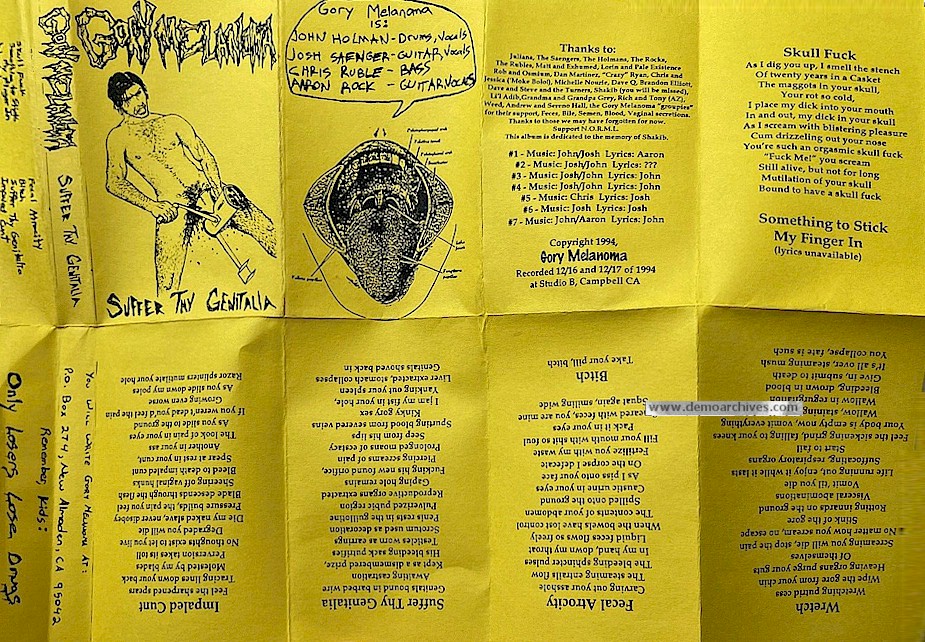 Skull Fuck
Something to Stick
My Finger In
Fecal Atrocity
Bitch
Suffer Thy Genitalia
Impaled Cunt
GORY MELANOMA
SUFFER THY GENITALIA
GORY MELANOMA
SUFFER THY GENITALIA
Gory Melanoma
is:
JOHN HOLMAN-DRUMS, Vocals
JOSH SAENGER-GUITAR, Vocals
CHRIS RUBLE - BASS
AARON ROCK - GUITAR, VOCALS
Thanks to:
Juliana, The Saengers, The Holmans, The Rocks,
The Rubles, Matt and Exhumed, Lorin and Pale Existence
Rob and Osmium, Dan Martinez, "Crazy" Ryan, Chris and
Jessica ('Moke Bolol), Michelle Nosefe, Dave Q, Brandon Elliott,
Dave and Steve and the Turners, Shakib (you will be missed),
Li'l Adib, Grandma and Grandpa Grey, Rich and Tony (AZ),
Weed, Andrew and Sereno Hall, the Gory Melanoma "groupies"
for their support, Feces, Bile, Semen, Blood, Vaginal secretions.
Thanks to those we may have forgotten for now.
Support N.O.R.M.L.
This album is dedicated to the memory of Shakib.
#1 - Music: John/Josh Lyrics: Aaron
#2 - Music: Josh/John Lyrics: ???
#3 - Music: Josh/John Lyrics: John
#4 - Music: Josh/John Lyrics: John
#5 - Music: Chris Lyrics: Josh
#6 - Music: Josh Lyrics: Josh
#7 - Music: John/Aaron Lyrics: John
Copyright 1994,
Gory Melanoma
Recorded 12/16 and 12/17 of 1994
at Studio B, Campbell CA
Skull Fuck
As I dig you up, I smell the stench
Of twenty years in a Casket
The maggots in your skull,
Your rot so cold,
I place my dick into your mouth
In and out, my dick in your skull
As I scream with blistering pleasure
Cum drizzeling out your nose
You're such an orgasmic skull fuck
"Fuck Me!" you scream
Still alive, but not for long
Mutilation of your skull
Bound to have a skull fuck
Something to Stick
My Finger In
(lyrics unavailable)
Wretch
Wretching putrid cess
Wipe the gore from your chin
Heaving organs purge your guts
Of themselves
Screaming you will die, stop the pain
No matter how you scream, no escape
Stink of the gore
Rotting innards on the ground
Visceral abominations
Vomit, 'til you die
Life running out, enjoy it while it lasts
Suffocating, respiratory organs
Start to fall
Feel the sickening grind, falling to your knees
Your body is empty now, vomit everything
Wallow, staining
Wallow in regurgitation
Bleeding, drown in blood
Give in, submit to death
It's all over, steaming mush
You collapse, fate is such
Fecal Atrocity
Carving out your asshole
The steaming entrails flow
The bleeding sphincter pulses
In my hand, down my throat
Liquid feces flows so freely
When the bowels have lost control
The contents of your abdomen
Spilled onto the ground
Caustic urine in your eyes
As I piss onto your face
On the corpse I defecate
Fertilize with my waste
Fill your mouth with shit foul
Pack it in your eyes
Smeared with feces, you are mine
Squat again, smiling wide
Bitch
Take your pill, bitch
Suffer Thy Genitalia
Genitals bound in barbed wire
Awaiting castration
Kept as a dismembered prize,
His bleeding sack putrifies
Testicles worn as earrings
Scrotum used as decoration
Penis rests in the guillotine
Pulverized pubic region
Reproductive organs extracted
Gaping hole remains
Fucking his new found orifice,
Piercing screams of pain
Prolonged moans of ecstacy
Seep from his lips
Blood spurting from severed veins
Kinky gory sex
I jam my fist in your hole,
Yanking out your spleen
Liver extracted, stomach collapses
Genitals shoved back in
Impaled Cunt
Feel the sharpened spears
Tracing lines down your back
Molested by my blades
Perversion takes its toll
No thoughts exists to let you live
Degraded you will die
Die my naked slave, never disobey
Pressure builds, the pain you feel
Blade descends through the flesh
Sheering off vaginal hunks
Bleed to death impaled cunt
Spear at rest in your cunt,
Another in your ass
The look of pain in your eyes
As you slide to the ground
If you weren't dead you'd feel the pain
Growing even worse
As you slide down my poles
Razor splinters mutilate your hole
You Will Write Gory Melanoma At:
P.O. Box 274, New Almaden, CA 95042
Remember, Kids:
Only Losers Lose Drugs
www.demoarchives.com